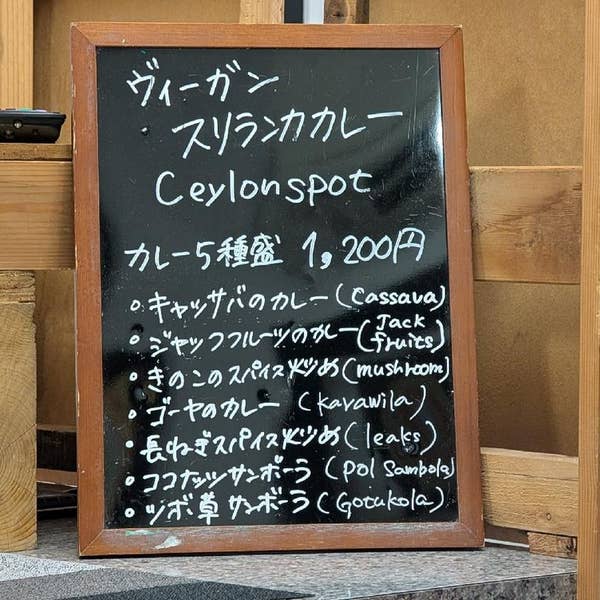 ヴィーガン
スリランカカレー
Ceylonspot
カレー5種盛 1,200円
• キャッサバのカレー (Cassava)
• ジャックフルーツのカレー (Jack fruits)
• きのこのスパイス炒め (mushroom)
• ゴーヤのカレー (Karawila)
• 長ねぎスパイス炒め (leaks)
• ココナッツサンボーラ (Pol Sambola)
• ツボ草サンボーラ (Gotukola)